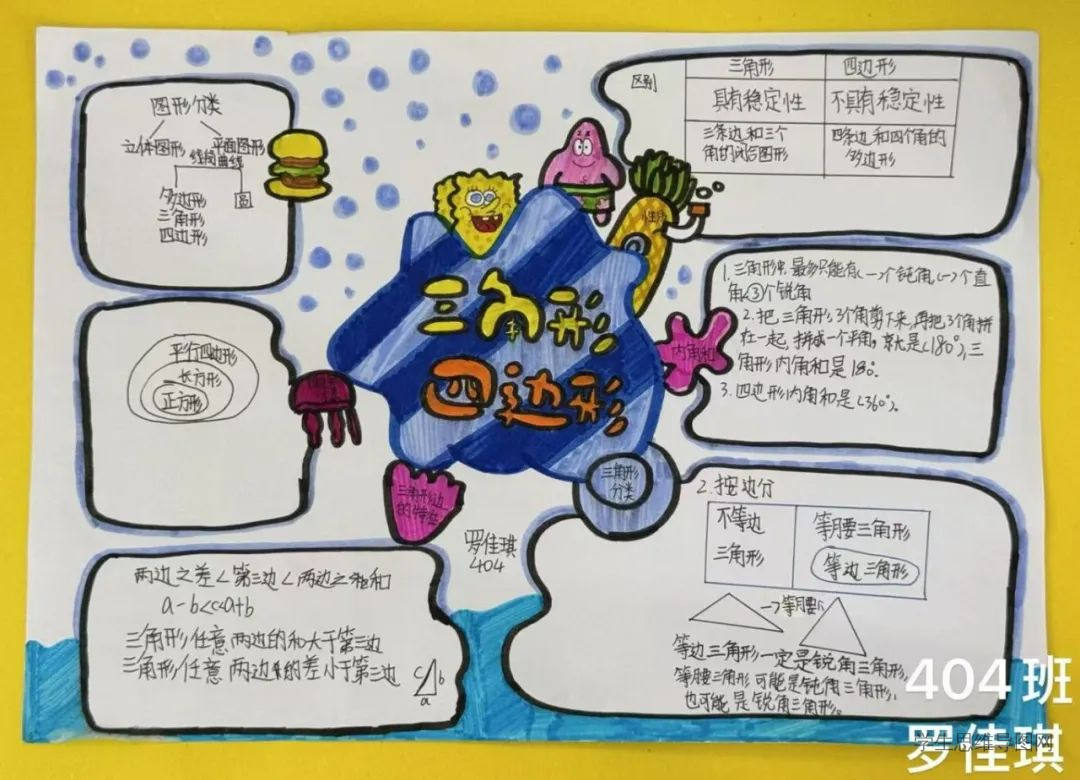 图形分类
立体图形 平面图形
线段 曲线
多边形 圆
三角形
四边形
区别
三角形 四边形
具有稳定性 不具有稳定性
三条边和三个角的闭合图形
四条边和四个角的多边形
三角形
四边形
平行四边形
长方形
正方形
内角和
1.三角形中最多只能有(一)个钝角,(一)个直
角,③个锐角
2.把三角形,3个角剪下来,再把3个角拼
在一起,拼成一个平角,就是(180°),三
角形内角和是180°.
3.四边形内角和是(360°)。
三角形边
的特征
两边之差<第三边<两边之和
a-b<c<a+b
三角形任意两边的和大于第三边
三角形任意两边的差小于第三边
c b
a
罗佳琪
404
三角形
分类
2.按边分
不等边
三角形
等腰三角形
等边三角形
等腰
等边三角形一定是锐角三角形,
等腰三角形可能是钝角三角形,
也可能是锐角三角形。
404班
罗佳琪
学生思维导图网